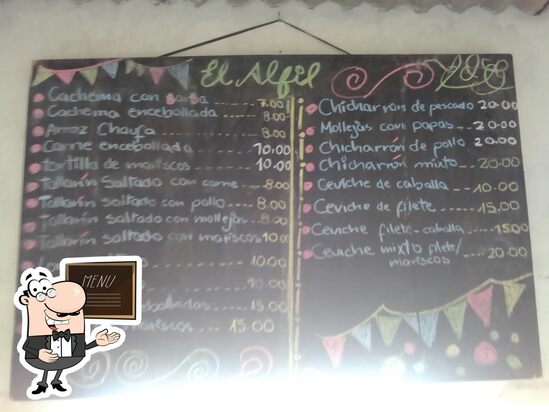 El Alfil
Cachema con salsa 7.00
Cachema encebollada 8.00
Arroz Chaufa 8.00
Carne encebollada 10.00
Tortilla de mariscos 10.00
Tallarin Saltado con carne 8.00
Tallarin Saltado con pollo 8.00
Tallarin saltado con mollejas 8.00
Tallarin saltado con mariscos 10.00
10.00
10.00
15.00
mariscos 15.00
Chicharrón de pescado 20.00
Mollejas con papas 20.00
Chicharrón de pollo 20.00
Chicharrón mixto 20.00
Ceviche de caballa 10.00
Ceviche de filete 15.00
Ceviche filete-caballa 1500
Ceviche mixto filete/
mariscos 20.00
MENU